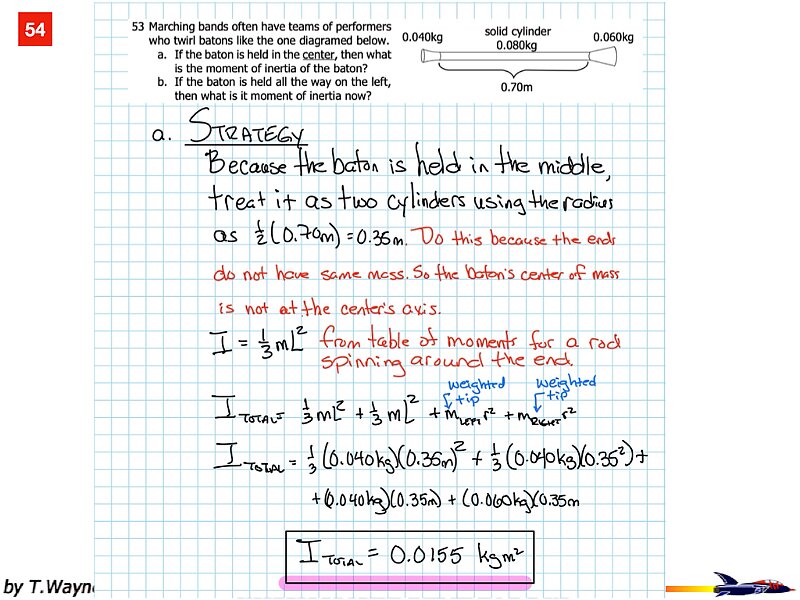 54
53 Marching bands often have teams of performers
who twirl batons like the one diagramed below.
a. If the baton is held in the center, then what
is the moment of inertia of the baton?
b. If the baton is held all the way on the left,
then what is it moment of inertia now?
0.040kg
solid cylinder
0.080kg
0.060kg
0.70m
a. STRATEGY
Because the baton is held in the middle,
treat it as two cylinders using the radius
as ½(0.70m) = 0.35m. Do this because the ends
do not have same mass. So the baton's center of mass
is not at the center's axis.
I = ⅓mL² from table of moments for a rod
spinning around the end.
weighted tip
weighted tip
I TOTAL = ⅓mL² + ⅓mL² + m LEFT r² + m RIGHT r²
I TOTAL = ⅓(0.040kg)(0.35m)² + ⅓(0.040kg)(0.35²) +
+ (0.040kg)(0.35m) + (0.060kg)(0.35m
I TOTAL = 0.0155 kgm²
by T.Wayne